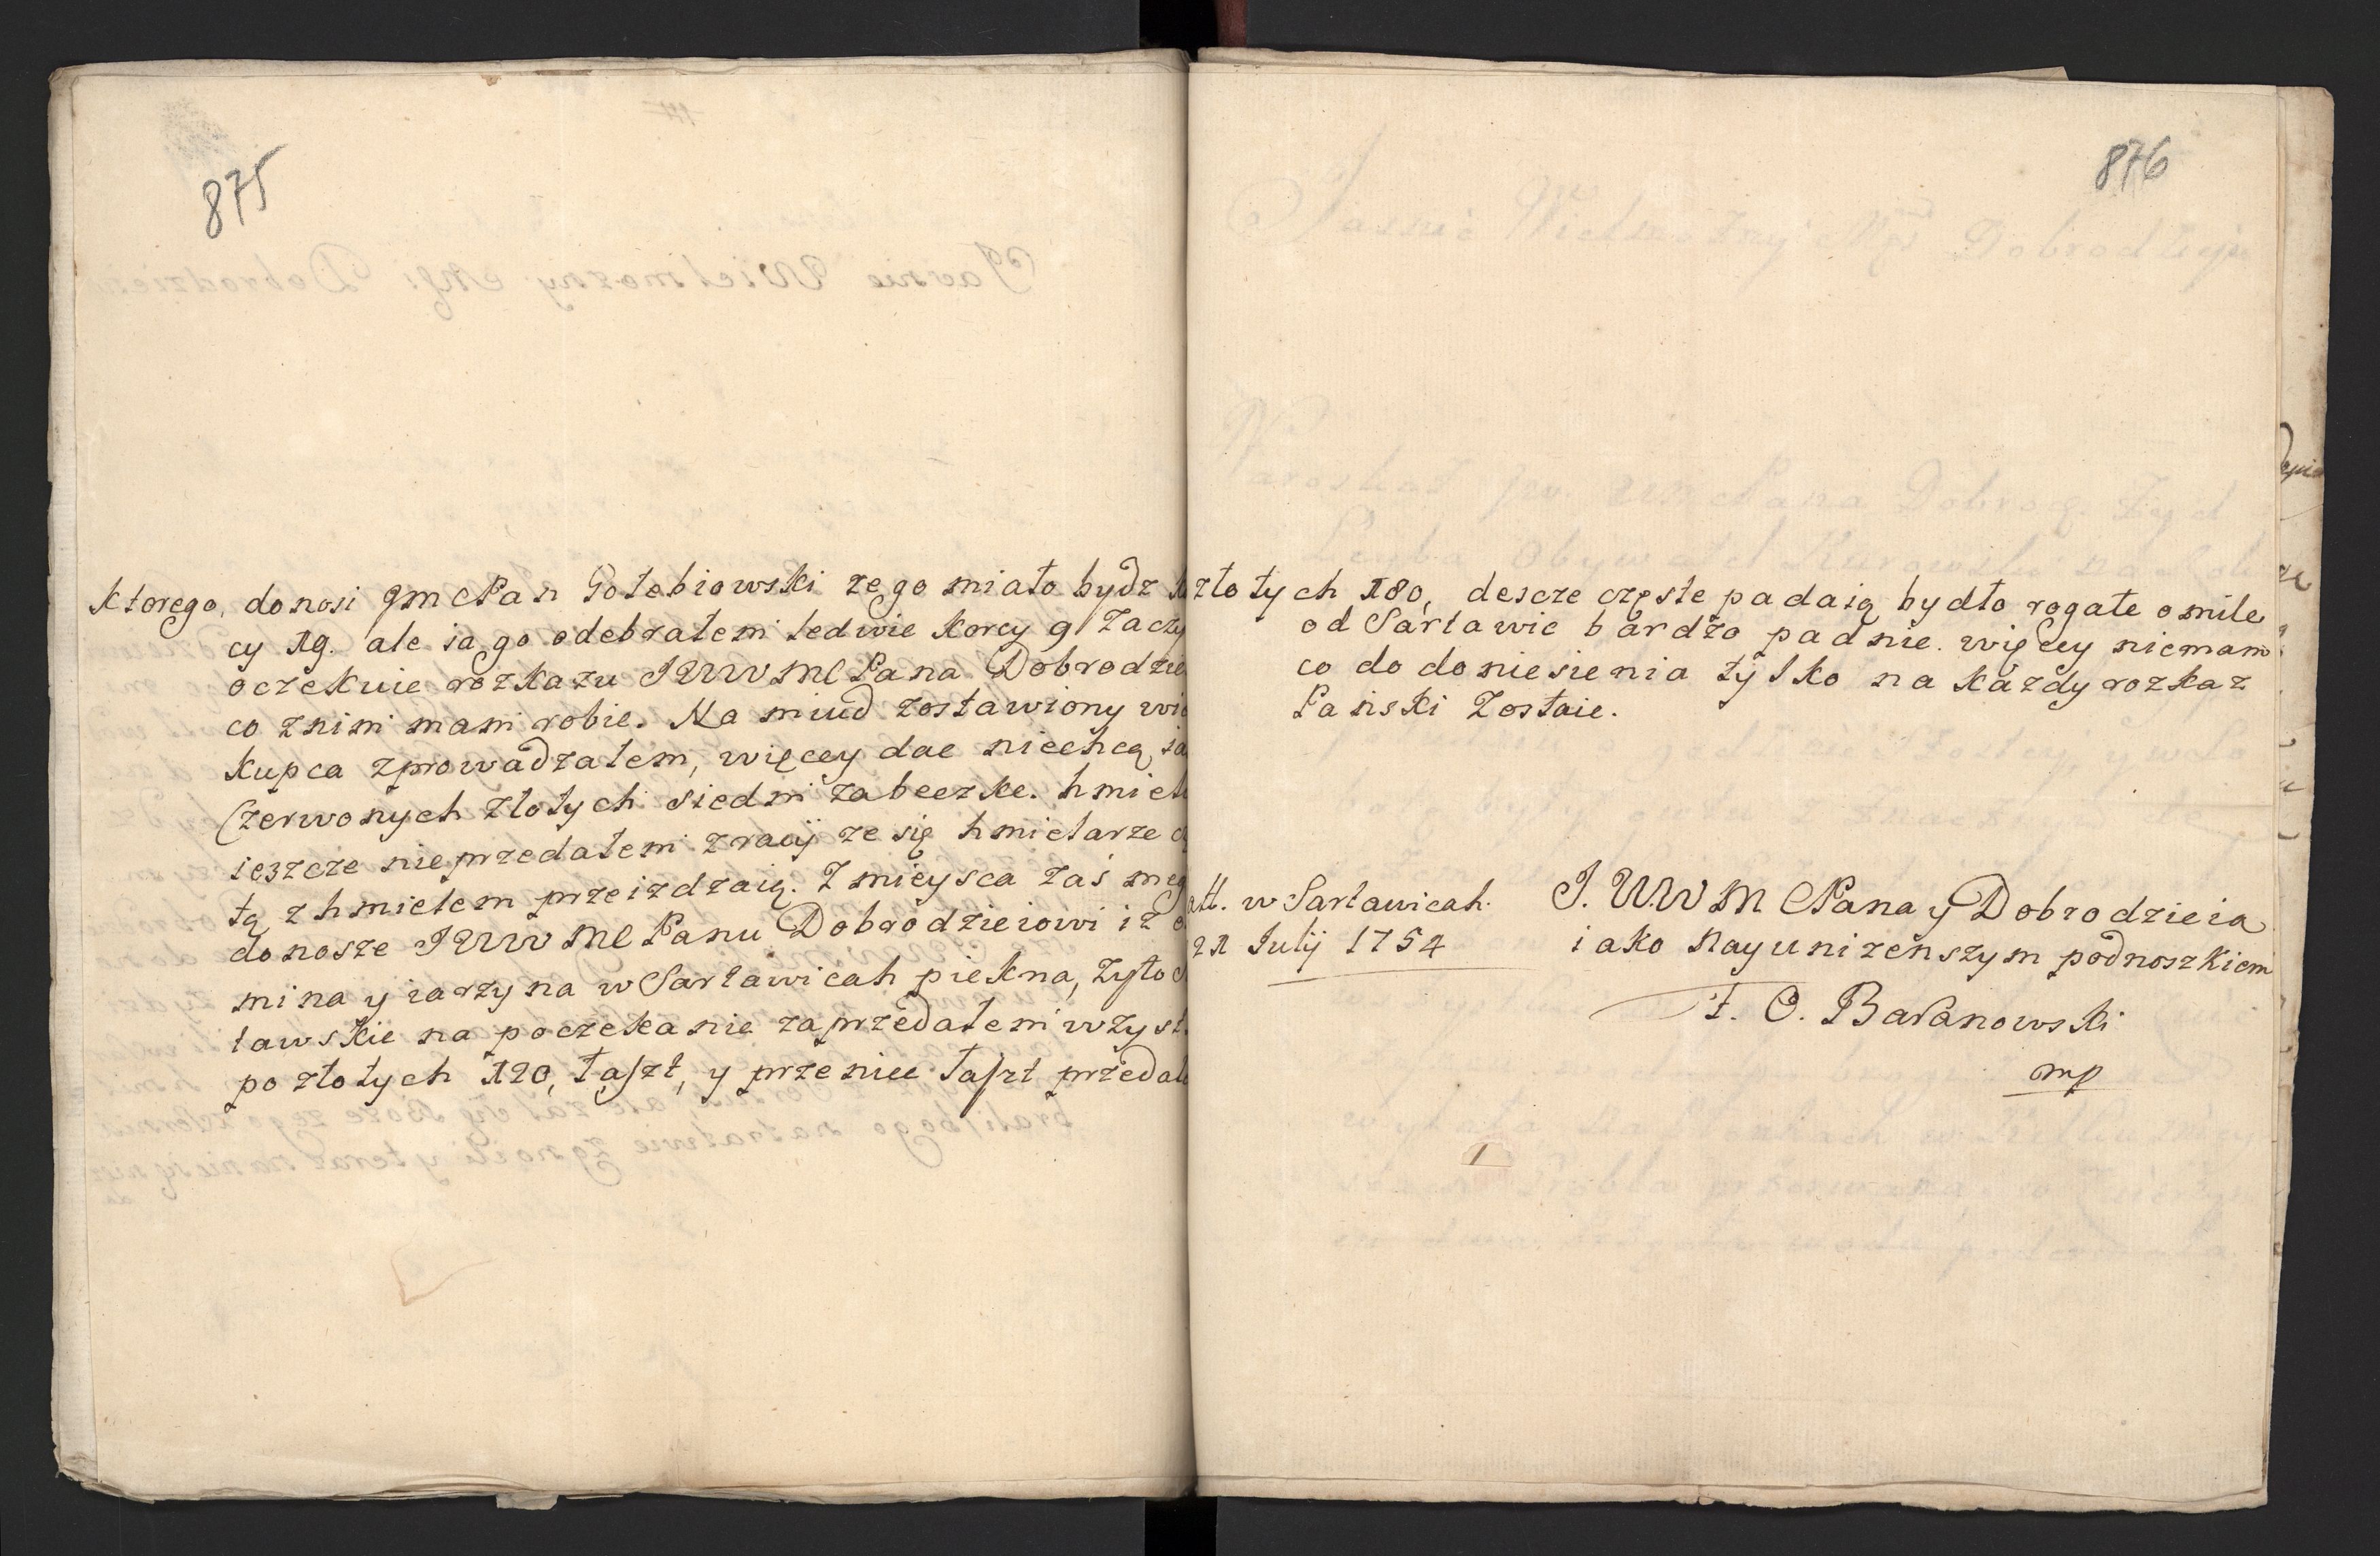 875
ktorego, donosi JmcPan Gołebiowski ze go miało bydz
cy 19. ale ia go odebrałem ledwie korcy 9 Zaczy
oczekuie rozkazu JWWMCPana Dobrodzie
co znim mam robic. Na miud zostawiony
kupca zprowadzałem, więcey dac niechcą
Czerwonych złotych siedm zabeczke. hmiel
ieszcze nieprzedałem zracij ze się hmielarze
tą z hmielem przeizdzaią. Z mieysca zaś meg
donosze JWWMCPanu Dobrodzieiowi iż
mina y iarzyna w Sartawicah piekna, żyto
tawskie na poczekanie zaprzedałem wzyst
po złotych 120, łaszt, y przenice łaszt przedał
876
złotych 180, descze częste padaią bydło rogate o mile
od Sartawic bardzo padnie. więcey niemam
co do doniesienia tylko na każdy rozkaz
Pański Zostaie.
att. w Sartawicah.
21 Julij 1754
J. W.W M CPana y Dobrodzieia
iako Nayunizenszym podnoszkiem
F. O. Baranowski
mp
1